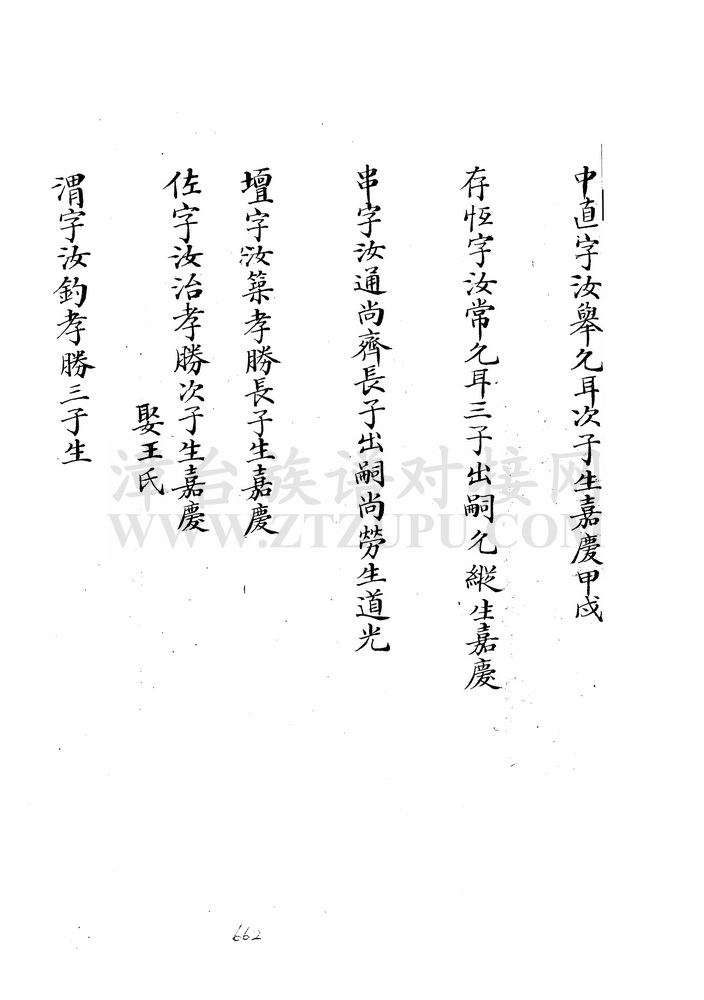 中直字汝舉允耳次子生嘉慶甲戌
存恆字汝常允耳三子出嗣允縱生嘉慶
串字汝通尚齊長子出嗣尚勞生道光
壇字汝築孝勝長子生嘉慶
佐字汝治孝勝次子生嘉慶
娶王氏
渭字汝釣孝勝三子生
漳台族谱对接网
WWW.ZTZUPU.COM
662